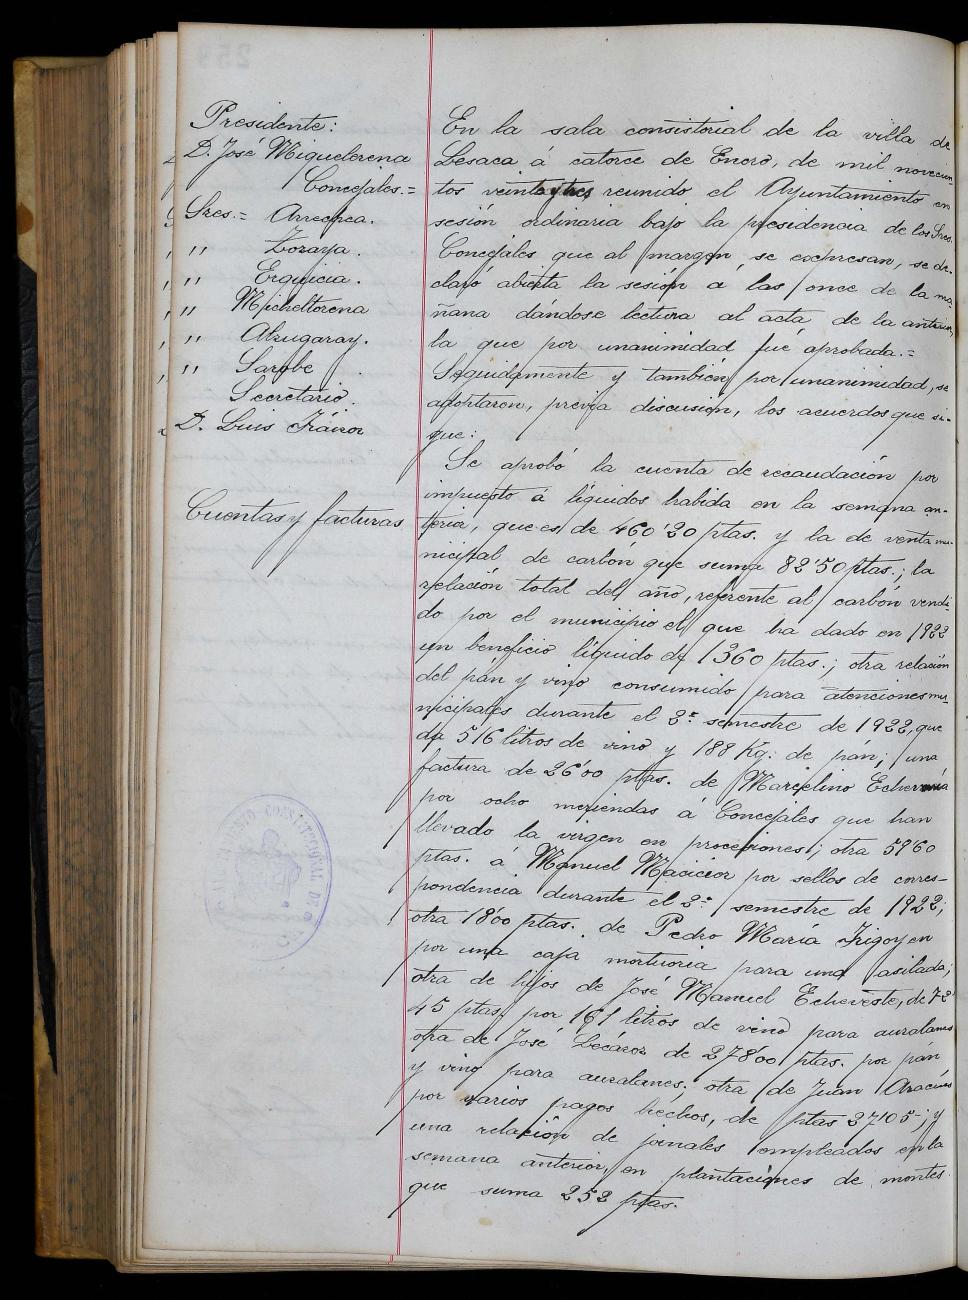 Presidente:
D. José Miguelerena
Concejales.=
Sres.= Arrechea.
" Zozaya.
" Erquicia.
" Micheltorena
" Alzugaray.
" Sarobe
Secretario.
D. Luis Iráizoz
Cuentas y facturas
En la sala consistorial de la villa de
Lesaca á catorce de Enero, de mil novecien-
tos veinteytres reunido el Ayuntamiento en
sesión ordinaria bajo la presidencia de los Sres.
Concejales que al margen se expresan, se de-
claró abierta la sesión á las once de la ma-
ñana dándose lectura al acta de la anterior,
la que por unanimidad fué aprobada.=
Seguidamente y tambien por unanimidad, se
adoptaron, previa discusión, los acuerdos que si-
gue:
Se aprobó la cuenta de recaudación por
impuesto á líquidos habida en la semana an-
terior, que es de 460'20 ptas. y la de venta mu-
nicipal de carbón que suma 82'50 ptas.; la
relación total del año, referente al carbón vendi-
do por el municipio el que ha dado en 1922
un beneficio líquido de 1360 ptas.; otra relación
del pan y vino consumido para atenciones mu-
nicipales durante el 2º semestre de 1922, que
da 516 litros de vino y 188 Kg. de pan; una
factura de 26'00 ptas. de Marcelino Echeverria
por ocho meriendas á Concejales que han
llevado la virgen en procesiones; otra 59'60
ptas. á Manuel Macicior por sellos de corres-
pondencia durante el 2º semestre de 1922;
otra 18'00 ptas. de Pedro María Irigoyen
por una caja mortuoria para una asilada;
otra de hijos de José Manuel Echeveste, de 72'
45 ptas. por 161 litros de vino para auzalanes
otra de José Lecároz de 278'00 ptas. por pan
y vino para auzalanes. otra de Juan
por varios pagos hechos, de ptas 271'05; y
una relación de jornales empleados en la
semana anterior, en plantaciones de montes
que suma 252 ptas.